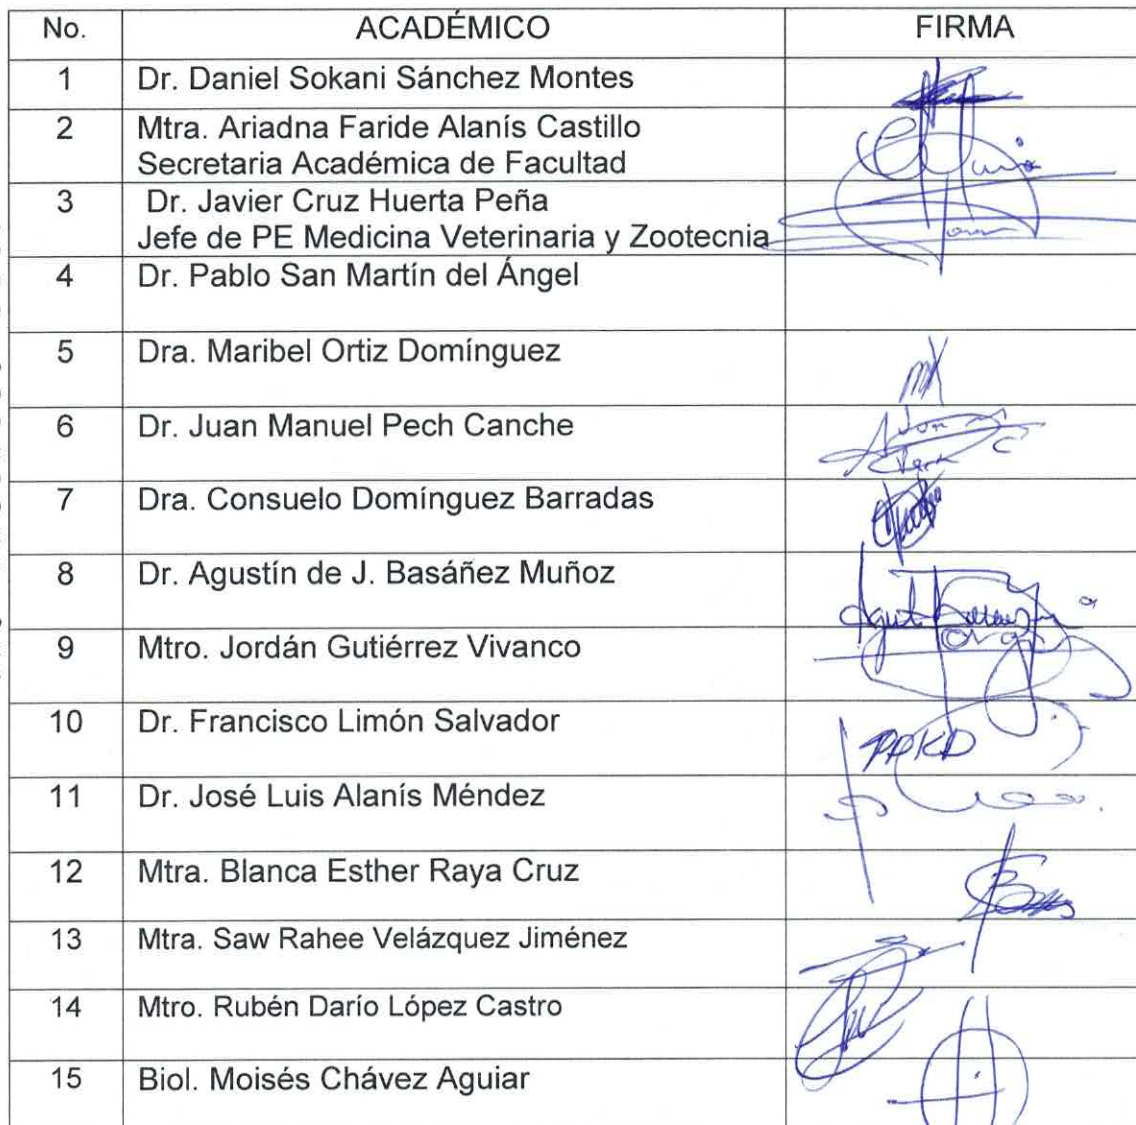 No. ACADÉMICO FIRMA
1 Dr. Daniel Sokani Sánchez Montes
2 Mtra. Ariadna Faride Alanís Castillo
Secretaria Académica de Facultad
3 Dr. Javier Cruz Huerta Peña
Jefe de PE Medicina Veterinaria y Zootecnia
4 Dr. Pablo San Martín del Ángel
5 Dra. Maribel Ortiz Domínguez
6 Dr. Juan Manuel Pech Canche
7 Dra. Consuelo Domínguez Barradas
8 Dr. Agustín de J. Basáñez Muñoz
9 Mtro. Jordán Gutiérrez Vivanco
10 Dr. Francisco Limón Salvador
11 Dr. José Luis Alanís Méndez
12 Mtra. Blanca Esther Raya Cruz
13 Mtra. Saw Rahee Velázquez Jiménez
14 Mtro. Rubén Darío López Castro
15 Biol. Moisés Chávez Aguiar